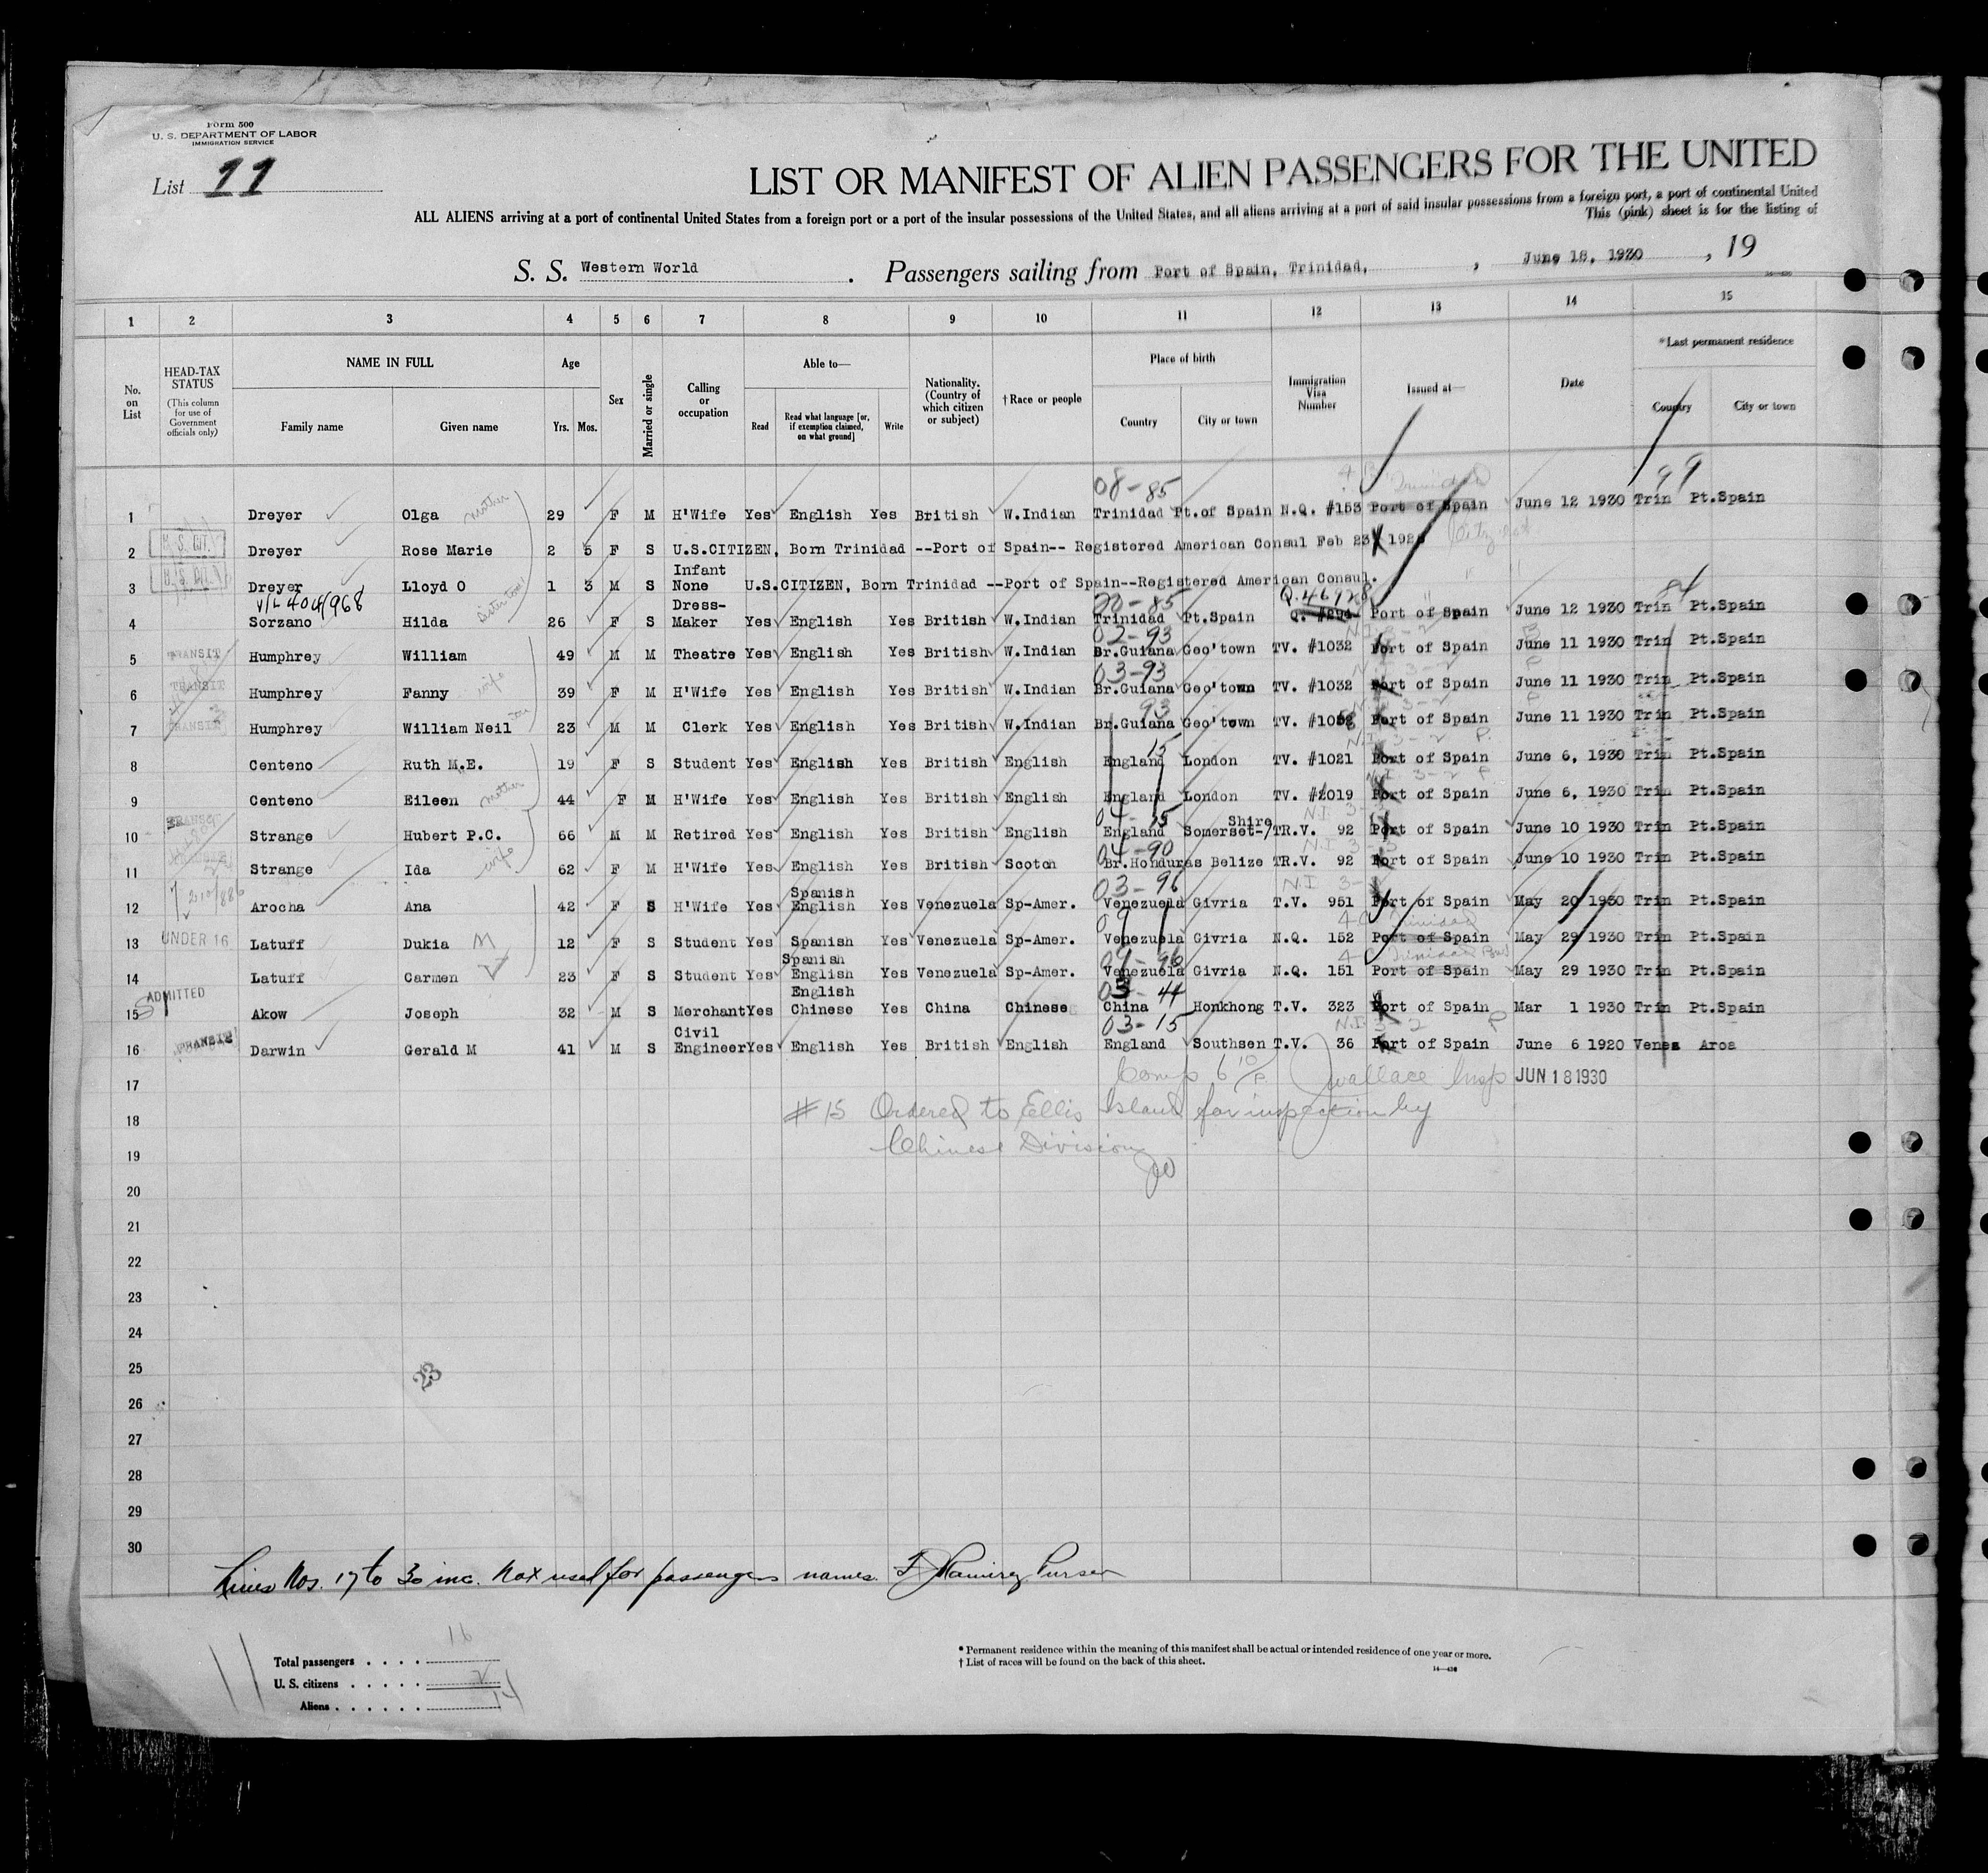 Form 500
U. S. DEPARTMENT OF LABOR
IMMIGRATION SERVICE
List 11
LIST OR MANIFEST OF ALIEN PASSENGERS FOR THE UNITED
ALL ALIENS arriving at a port of continental United States from a foreign port or a port of the insular possessions of the United States, and all aliens arriving at a port of said insular possessions from a foreign port, a port of continental United
This (pink) sheet is for the listing of
S. S. Western World. Passengers sailing from Port of Spain, Trinidad, , June 18, 1930 , 19
1 2 3 4 5 6 7 8 9 10 11 12 13 14 15
No. on List
HEAD-TAX STATUS (This column for use of Government officials only)
NAME IN FULL Family name Given name
Age Yrs. Mos.
Sex
Married or single
Calling or occupation
Able to— Read Read what language [or, if exemption claimed, on what ground] Write
Nationality. (Country of which citizen or subject)
†Race or people
Place of birth Country City or town
Immigration Visa Number
Issued at—
Date
*Last permanent residence Country City or town
08-85 99
1 Dreyer Olga mother 29 F M H'Wife Yes English Yes British W.Indian Trinidad Pt.of Spain N.Q. #153 Port of Spain June 12 1930 Trin Pt.Spain
2 U.S. CIT. Dreyer Rose Marie 2 5 F S U.S.CITIZEN, Born Trinidad --Port of Spain-- Registered American Consul Feb 23
Infant
3 U.S. CIT. Dreyer Lloyd O 1 3 M S None U.S.CITIZEN, Born Trinidad --Port of Spain--Registered American Consul.
V/L 404/968 Dress- 84
4 Sorzano Hilda 26 F S Maker Yes English Yes British W.Indian Trinidad Pt.Spain Port of Spain June 12 1930 Trin Pt.Spain
02-93
5 TRANSIT Humphrey William 49 M M Theatre Yes English Yes British W.Indian Br.Guiana Geo'town TV. #1032 Port of Spain June 11 1930 Trin Pt.Spain
03-93
6 TRANSIT Humphrey Fanny wife 39 F M H'Wife Yes English Yes British W.Indian Br.Guiana Geo'town TV. #1032 Port of Spain June 11 1930 Trin Pt.Spain
93
7 TRANSIT Humphrey William Neil son 23 M M Clerk Yes English Yes British W.Indian Br.Guiana Geo'town TV. Port of Spain June 11 1930 Trin Pt.Spain
15
8 Centeno Ruth M.E. 19 F S Student Yes English Yes British English England London TV. #1021 Port of Spain June 6, 1930 Trin Pt.Spain
9 Centeno Eileen mother 44 F M H'Wife Yes English Yes British English England London TV. Port of Spain June 6, 1930 Trin Pt.Spain
04-15 Shire
10 TRANSIT Strange Hubert P.C. 66 M M Retired Yes English Yes British English England Somerset-/ TR.V. 92 Port of Spain June 10 1930 Trin Pt.Spain
04-90
11 Strange Ida wife 62 F M H'Wife Yes English Yes British Scotch Br.Honduras Belize TR.V. 92 Port of Spain June 10 1930 Trin Pt.Spain
Spanish 03-96
12 Arocha Ana 42 F S H'Wife Yes English Yes Venezuela Sp-Amer. Venezuela Givria T.V. 951 Port of Spain May 20 1930 Trin Pt.Spain
13 UNDER 16 Latuff Dukia M 12 F S Student Yes Spanish Yes Venezuela Sp-Amer. Venezuela Givria N.Q. 152 Port of Spain May 29 1930 Trin Pt.Spain
Spanish
14 Latuff Carmen 23 F S Student Yes English Yes Venezuela Sp-Amer. Venezuela Givria N.Q. 151 Port of Spain May 29 1930 Trin Pt.Spain
ADMITTED English
15 Akow Joseph 32 M S Merchant Yes Chinese Yes China Chinese China Honkhong T.V. 323 Port of Spain Mar 1 1930 Trin Pt.Spain
Civil 03-15 N.I. 3-2
16 TRANSIT Darwin Gerald M 41 M S Engineer Yes English Yes British English England Southsen T.V. 36 Port of Spain June 6 1920 Venes Aroa
17 Wallace Insp JUN 18 1930
18 #15 Ordered to Ellis Island for inspection by
19 Chinese Division
20
21
22
23
24
25
26
27
28
29
30
Lines Nos. 17 to 30 inc. Not used for passengers names. Ramirez Purser
Total passengers 16
U. S. citizens 2
Aliens 14
* Permanent residence within the meaning of this manifest shall be actual or intended residence of one year or more.
† List of races will be found on the back of this sheet.